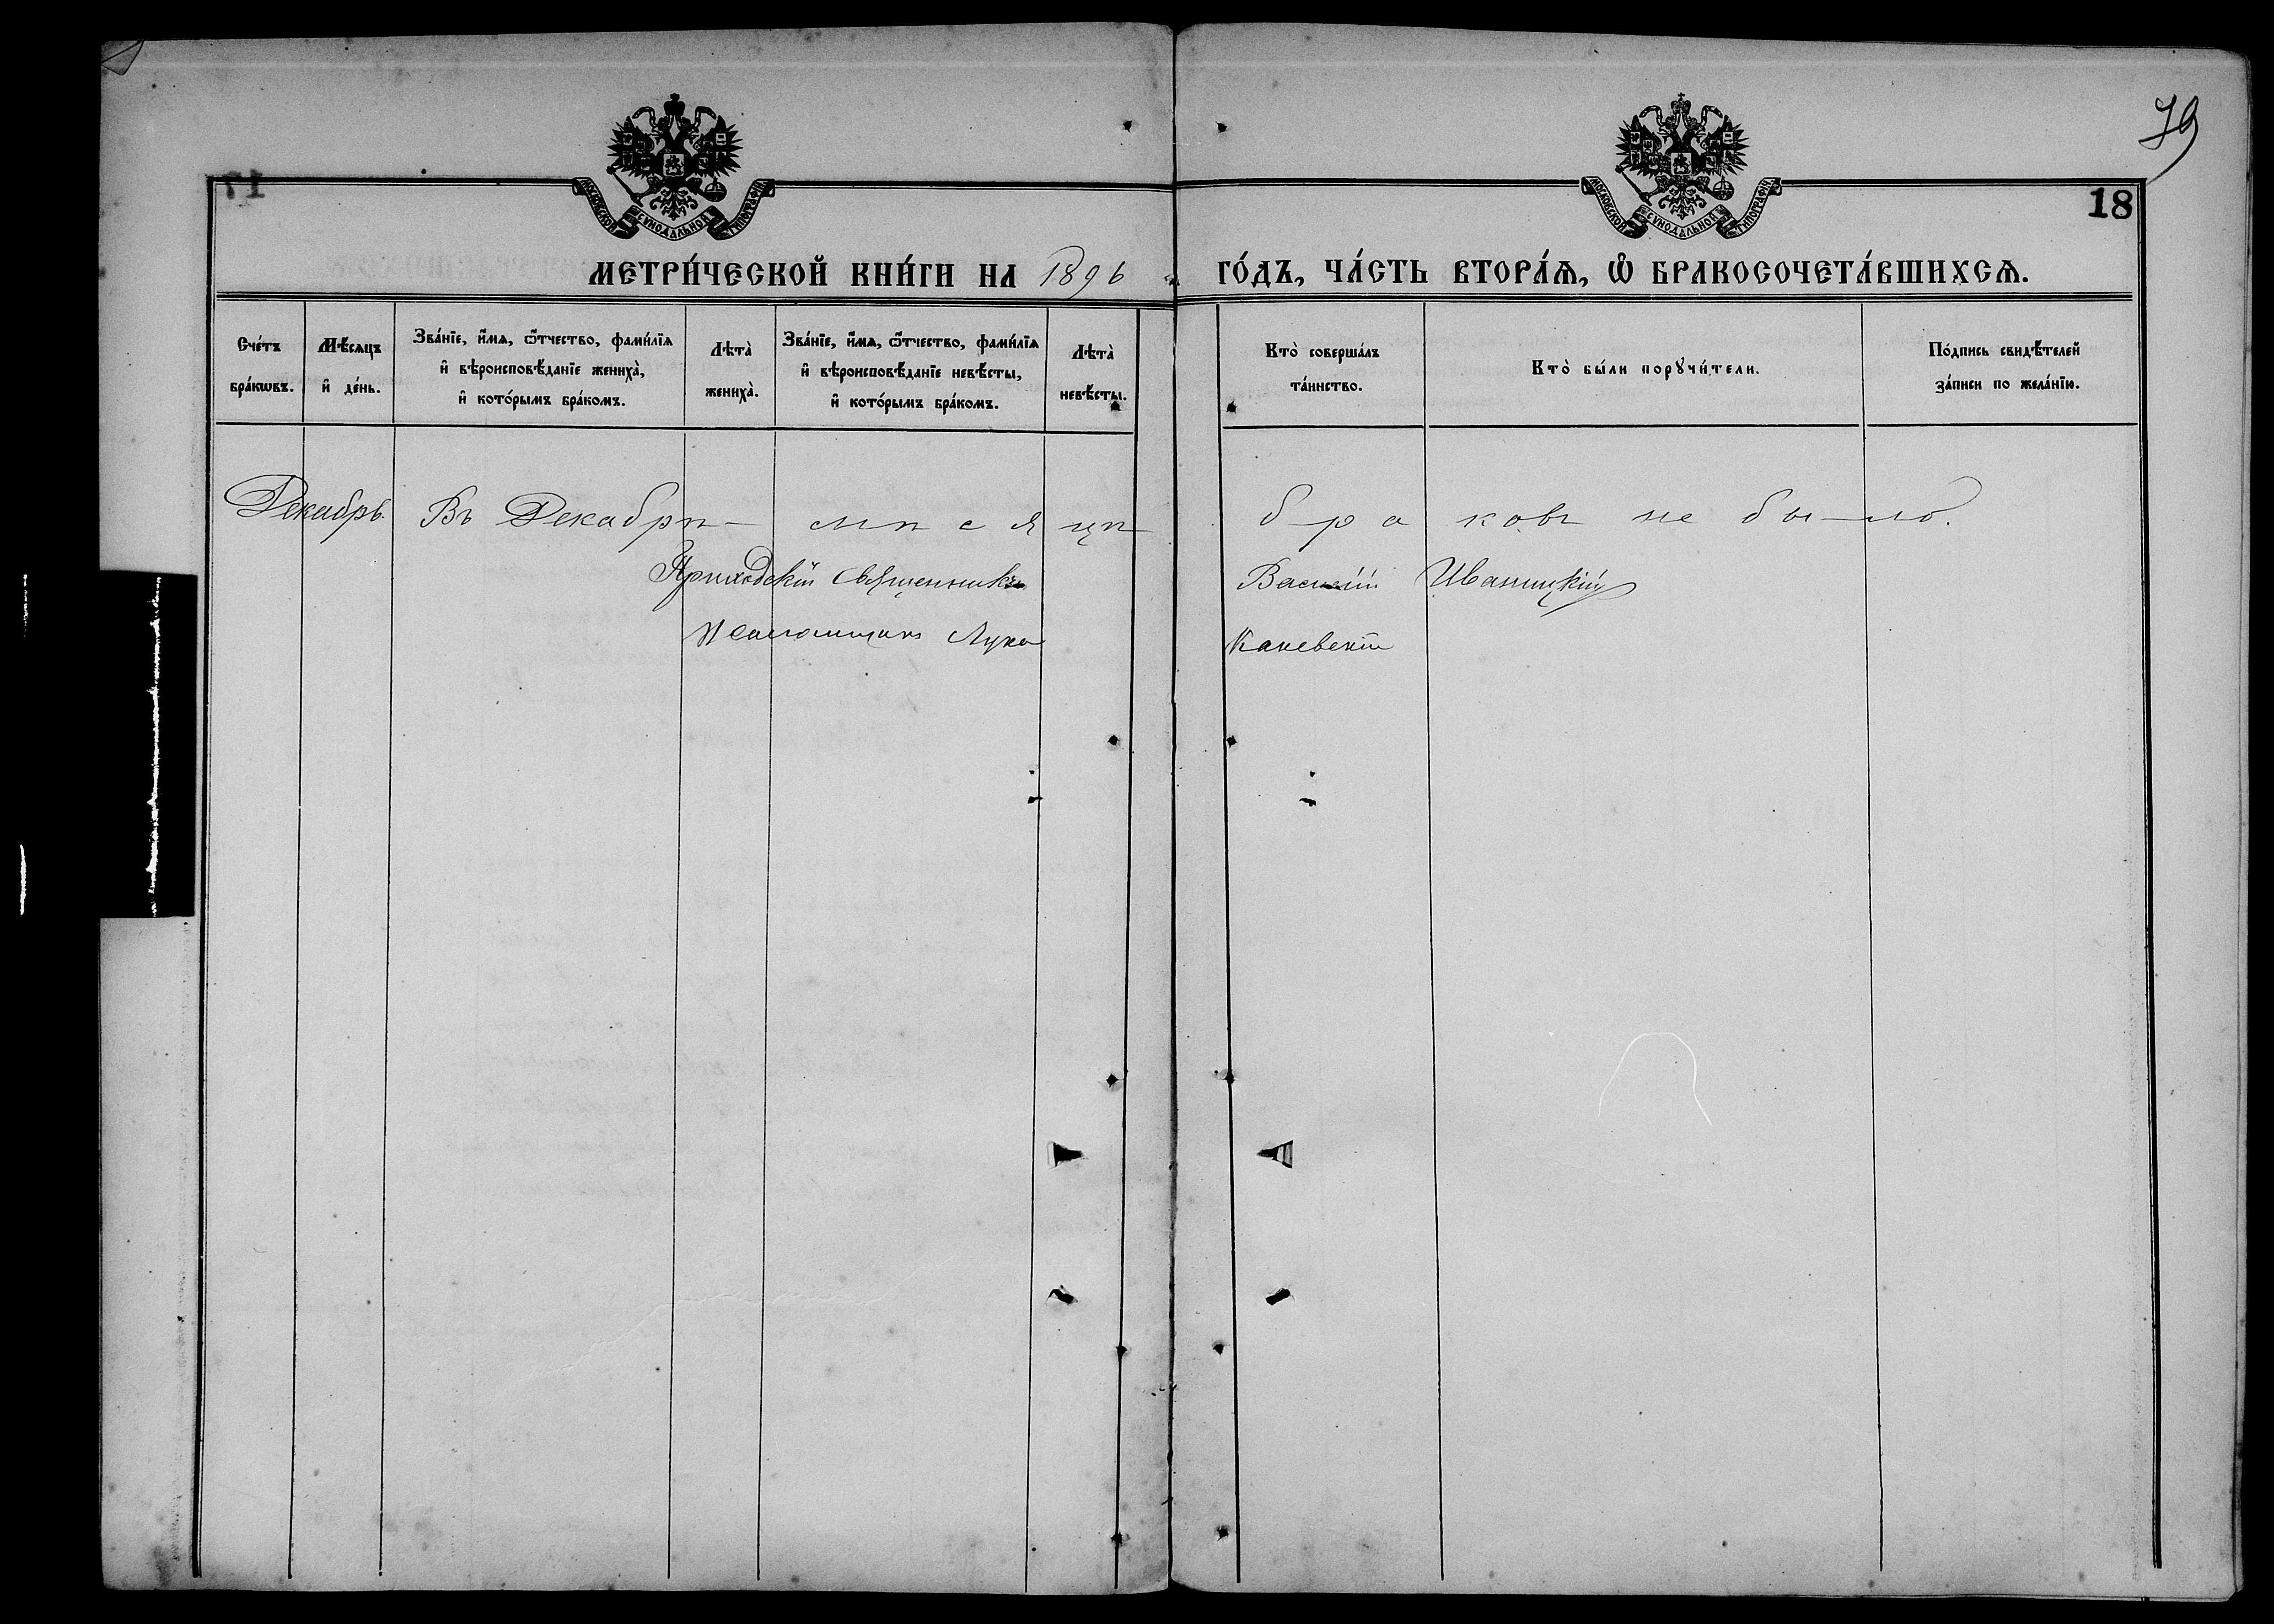 79
71
18
МОСКОВСКОЙ СѴНОДАЛЬНОЙ ТИПОГРАФІИ
МОСКОВСКОЙ СѴНОДАЛЬНОЙ ТИПОГРАФІИ
МЕТРИ́ЧЕСКОЙ КНИ́ГИ НА 1896 ГО́ДЪ, ЧА́СТЬ ВТОРА́Ѧ, Ѿ БРАКОСОЧЕТА́ВШИХСѦ.
Сче́тъ бра́кѡвъ.
Мѣ́сяцъ и҆ де́нь.
Зва́нїе, и҆́мѧ, ѻ҆́тчество, фами́лїѧ и҆ вѣроисповѣ́данїе жениха̀, и҆ кото́рымъ бра́комъ.
Лѣта̀ жениха̀.
Зва́нїе, и҆́мѧ, ѻ҆́тчество, фами́лїѧ и҆ вѣроисповѣ́данїе невѣ́сты, и҆ кото́рымъ бра́комъ.
Лѣта̀ невѣ́сты.
Кто̀ соверша́лъ та́инство.
Кто̀ бы́ли порꙋчи́тели.
По́дпись свидѣ́телей за́писи по жела́нїю.
Декабрь. Въ Декабрѣ мѣсяцѣ браковъ не было.
Приходскій Священникъ Василій Иваницкій
Псаломщикъ Лука Каневскій